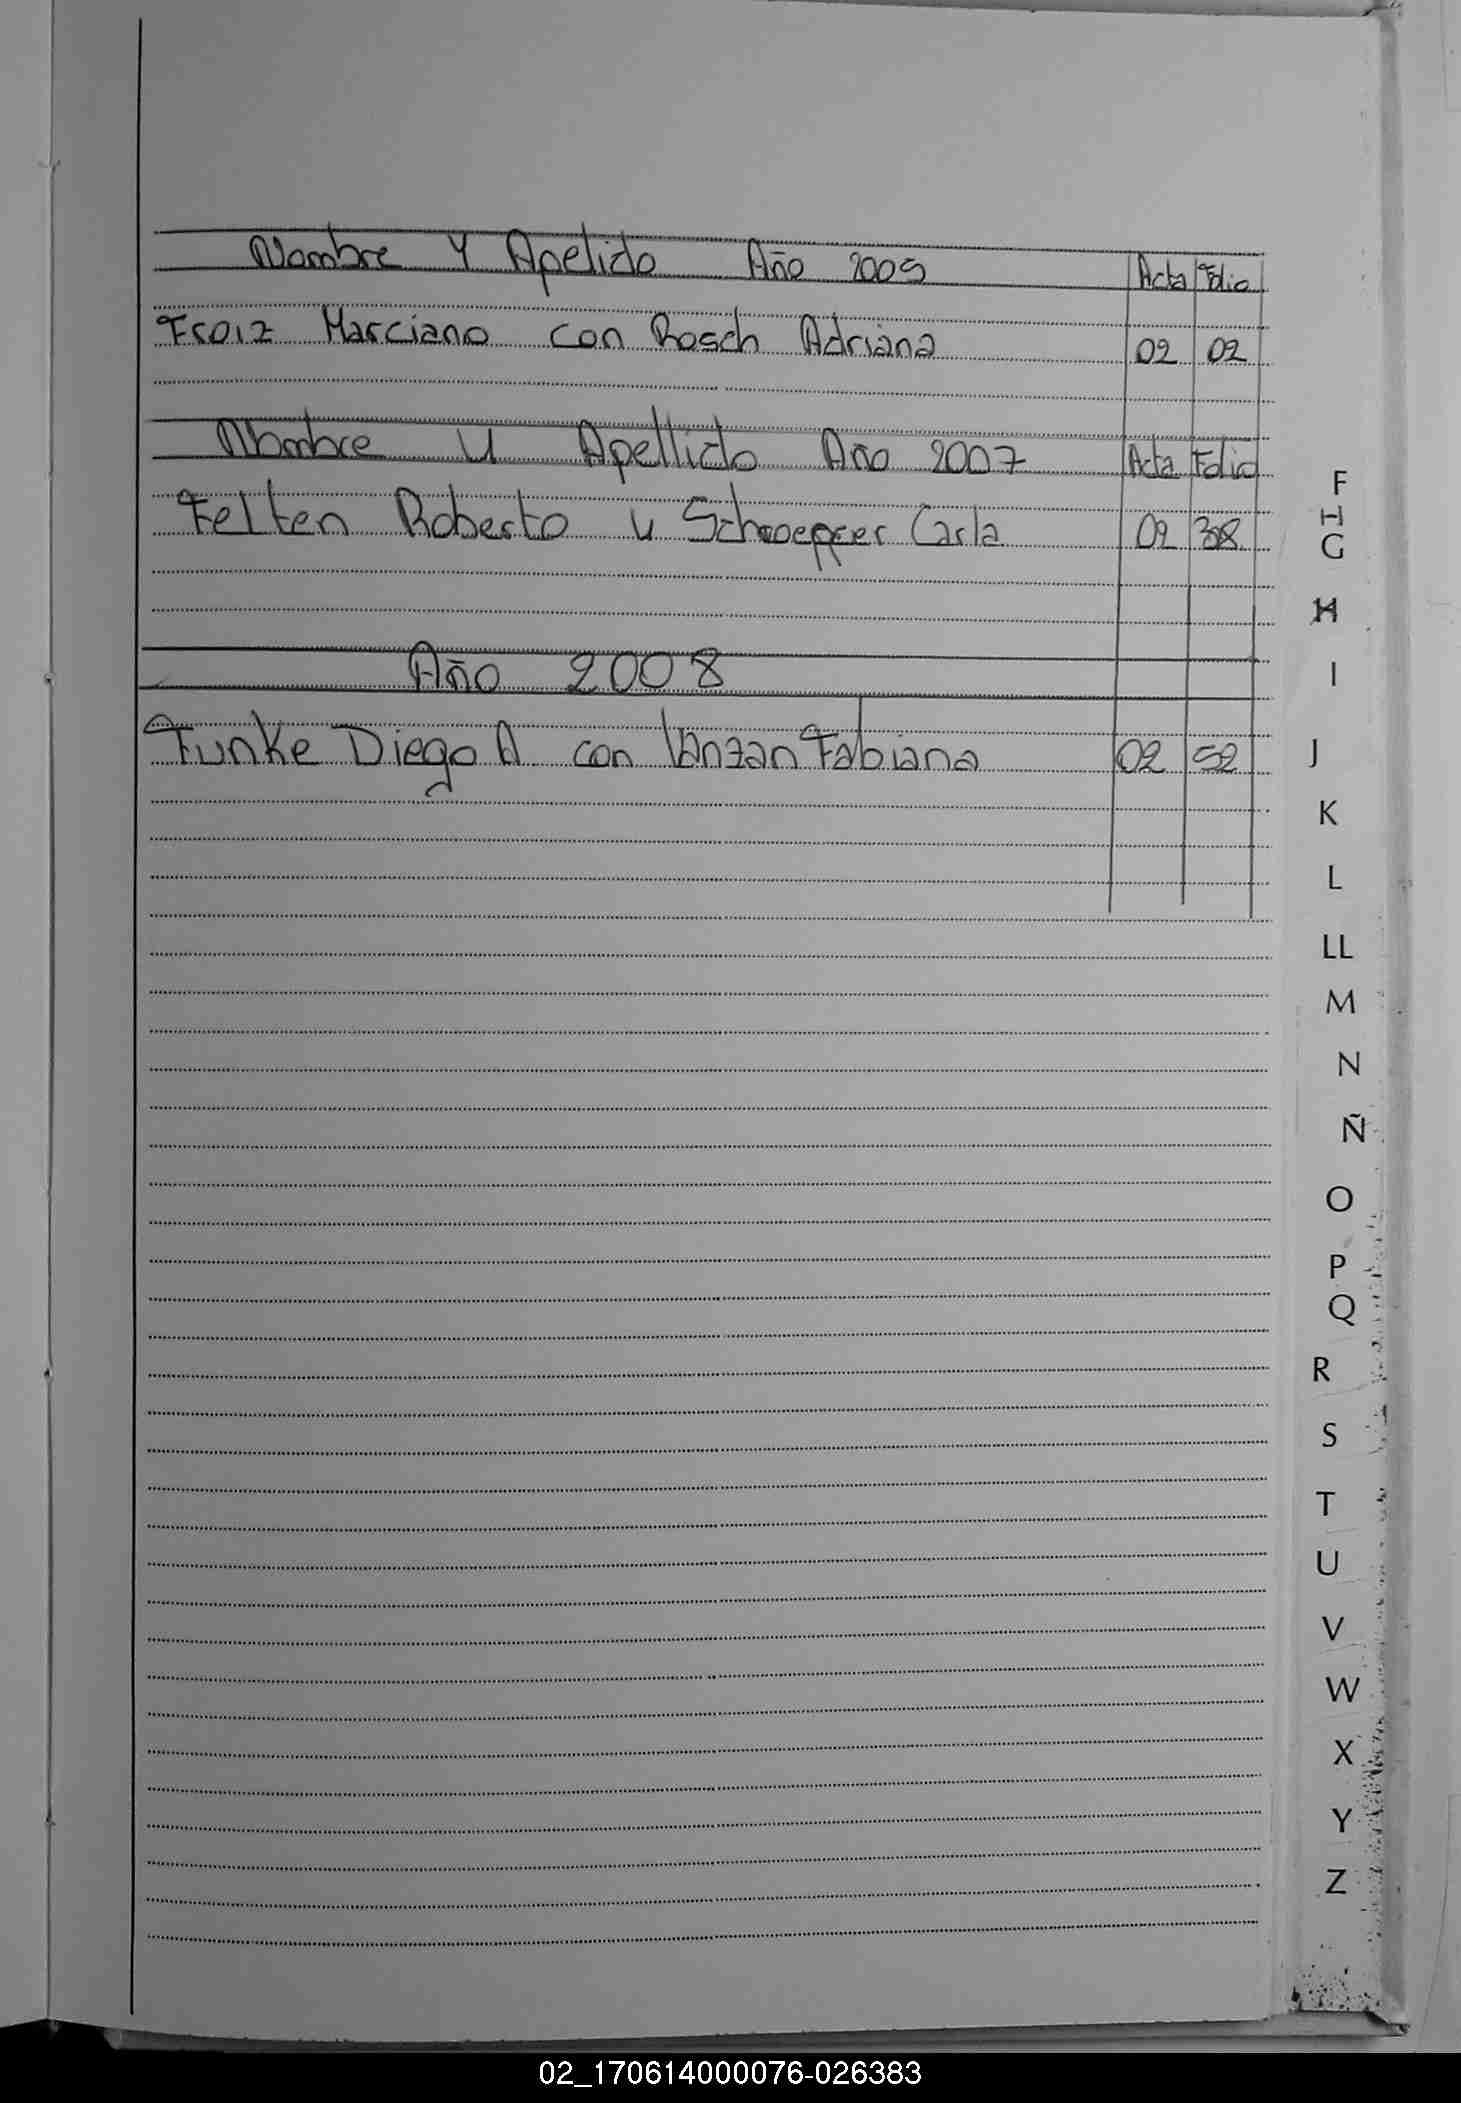 Nombre Y Apelido Año 2005 Acta Folio
Froiz Marciano con Rosch Adriana 02 02
Nombre y Apellido Año 2007 Acta Folio
Felten Roberto y Carla 02 38
Año 2008
Funke Diego A con Fabiana 02 52
F
H
G
H
I
J
K
L
LL
M
N
Ñ
O
P
Q
R
S
T
U
V
W
X
Y
Z
02_170614000076-026383